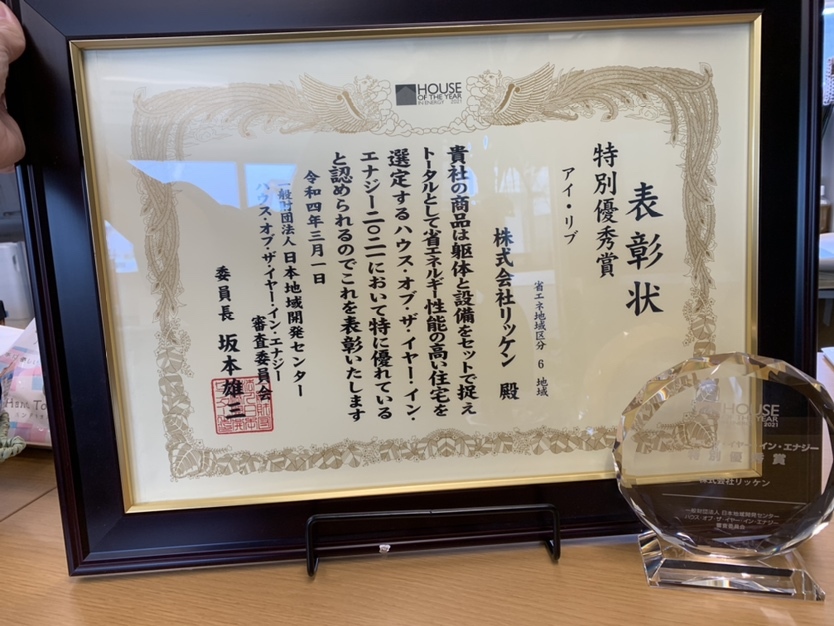 HOUSE
OF THE YEAR
IN ENERGY 2021
表彰状
特別優秀賞
アイ・リブ
省エネ地域区分 6 地域
株式会社リッケン 殿
貴社の商品は躯体と設備をセットで捉え
トータルとして省エネルギー性能の高い住宅を
選定するハウス・オブ・ザ・イヤー・イン・
エナジー二〇二一において特に優れている
と認められるのでこれを表彰いたします
令和四年三月一日
一般財団法人 日本地域開発センター
ハウス・オブ・ザ・イヤー・イン・エナジー
審査委員会
委員長 坂本雄三
HOUSE
OF THE YEAR
2021
イヤー・イン・エナジー
特別優秀賞
株式会社リッケン
一般財団法人 日本地域開発センター
ハウス・オブ・ザ・イヤー・イン・エナジー
審査委員会